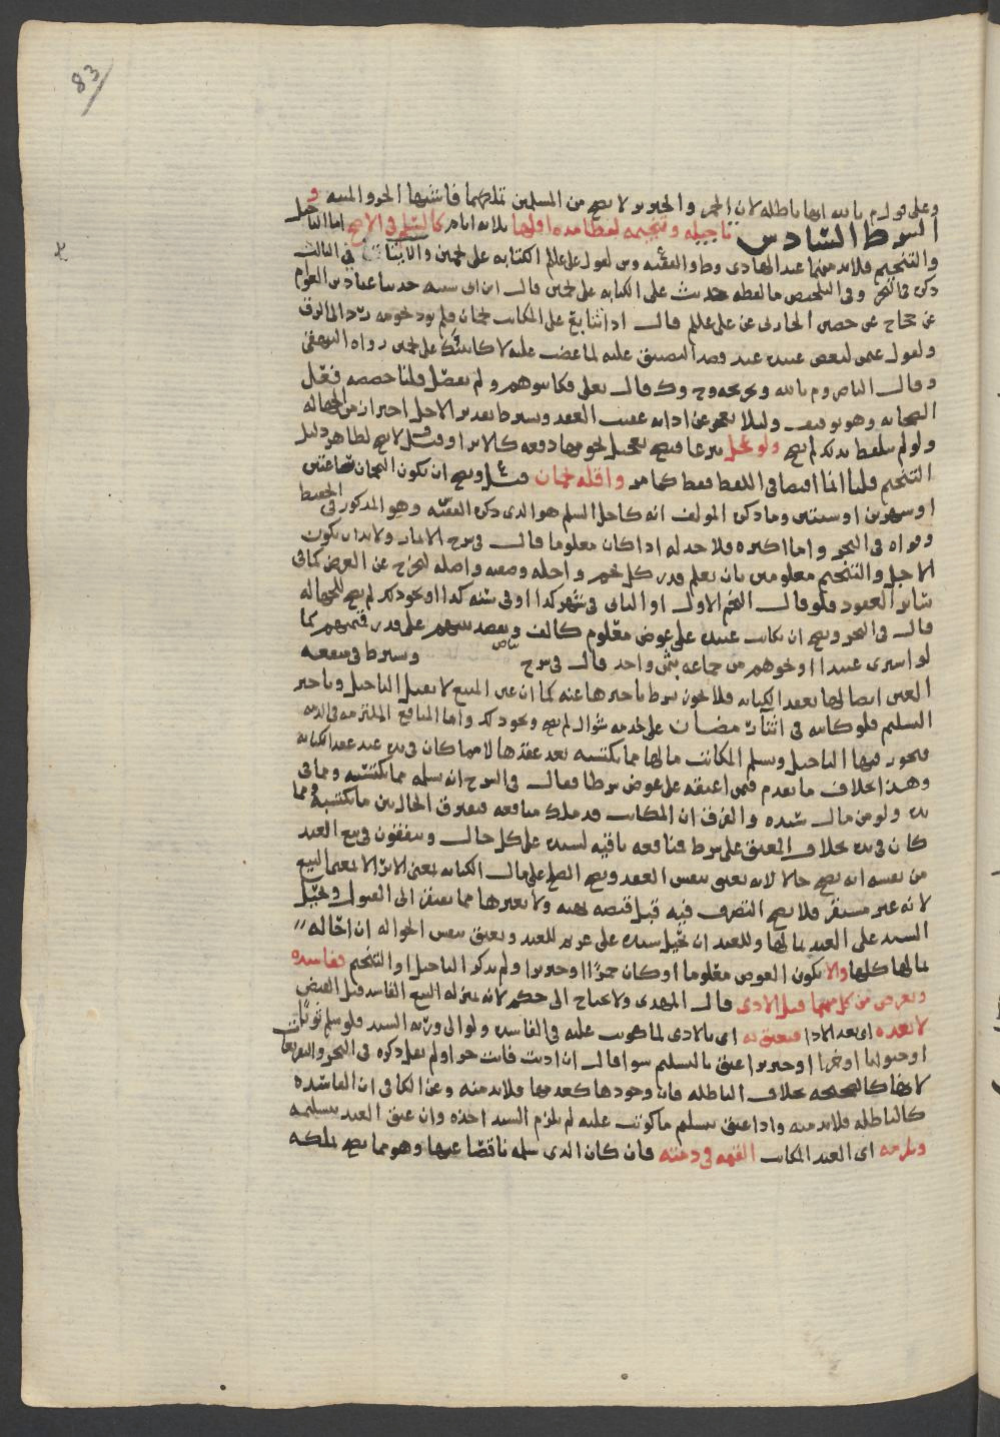 83
وعلى قول م بالله انها باطله لان الخمر والخنزير لا يصح من المسلمين تملكهما فاشبها الحر والميته و
الشرط السادس تاجيله وتنجيمه لفظا مده اقلها ثلاثه ايام كالسلم في الاصح اما التاجيل
والتنجيم فلا بد منهما عند الهادي وط والحقينه وش لقول علي علم الكتابه على نجمين والايتا في الثالث
ذكره في البحر وفي التلخيص ما لفظه حديث علي الكتابه على نجمين قال ابن ابي شيبه حدثنا عباد بن العوام
عن حجاج عن حصين الحارثي عن علي علم قال اذا تتابع على المكاتب نجمان فلم يود نجومه رد الى الرق
ولقول عثمن لبعض عبيده عند قصد التضييق عليه لما غضب عليه لا كاتبتك على نجمين رواه البيهقي
وقال الناصر وم بالله و وح وك قال تعالى فكاتبوهم ولم يفصل قلنا خصصه فعل
الصحابه وهو توقيف ولئلا يعجز عن ادائه عقيب العقد ويشترط تقدير الاجل احترازا من الجهاله
ولو لم يتلفظ بذلك لم يصح ولو عجل تبرعا فيصح تعجيل نجومها دفعه كالابرا وقيل لا يصح لظاهر دليل
التنجيم قلنا انما اقتضا في اللفظ فقط كما مر واقله نجمان قيل ع ويصح ان يكون النجمان ساعتين
او شهرين او سنتين وما ذكره المولف انه كاجل السلم هو الذي ذكره الفقيه وهو المذكور في الحفيظ
وقواه في البحر واما اكثره فلا حد له اذا كان معلوما قال في شرح الاثمار ولا بد ان يكون
الاجل والتنجيم معلومين بان يعلم قدر كل نجم واجله وصفته واصله ليخرج عن الغرر كما في
سائر العقود فلو قال النجم الاول او الثاني في شهر كذا او في سنه كذا او نحو ذلك لم يصح للجهاله
قال في البحر ويصح ان يكاتب عبيده على عوض معلوم كالف ويقصد بينهم على قدر قيمتهم كما
لو اشترى عبيدا او نحوهم من جماعه بثمن واحد قال في شرح بياض ويشترط في منفعه
العين اتصالها بعقد الكتابه فلا يجوز شرط تاخيرها عنه كما ان عين المبيع لا يقبل التاجيل وتاخير
التسليم فلو كاتبه في اثنآء رمضان على خدمه شوال لم يصح ونحو ذلك واما المنافع الملتزمه في الذمه
فيجوز فيها التاجيل ويسلم المكاتب مالها مما يكتسبه بعد عقدها لا مما كان في يده عند عقد الكتابه
وهذا بخلاف ما تقدم فيمن اعتقه على عوض شرطا فقال في الشرح انه يسلمه مما يكتسبه ومما في
يده ولو من مال سيده والفرق ان المكاتب قد ملك منافعه فيفترق الحال بين ما يكتسبه ومما
كان في يده بخلاف العتق على شرط فمنافعه باقيه لسيده على كل حال ويتفقون في بيع العبد
من نفسه انه يصح حالا لانه يعتق بنفس العقد ويصح الصلح على مال الكتابه بمعنى الابرا لا بمعنى البيع
لانه غير مستقر فلا يصح التصرف فيه قبل قبضه بهبه ولا بغيرها مما يفتقر الى القبول ويحيل
السيد على العبد بمالها وللعبد ان يحيل سيده على غريم للعبد ويعتق بنفس الحواله ان احاله
بمالها كلها والا يكون العوض معلوما او كان خمرًا او خنزيرا ولم يذكر التاجيل او التنجيم ففاسده
وتعرض من كل منهما قبل الادى قال المهدي ولا يحتاج الى حكم لانه بمنزله البيع الفاسد قبل القبض
لا بعده اي بعد الادا فيعتق به اي بالادى لما كوتب عليه في الفاسده ولو الى ورثه السيد فلو سلم ثوبًا
او حيوانا او خمرا او خنزيرا عتق بالتسليم سوا قال ان اديت فانت حر او لم يقل ذكره في البحر
لانها كالصحيحه بخلاف الباطله فان وجودها كعدمها فلا بد منه وعن الكافي ان الفاسده
كالباطله فلا بد منه واذا عتق بتسليم ما كوتب عليه لم يلزم السيد اخذه وان عتق العبد بتسليمه
ويلزمه اي العبد المكاتب القيمه في ذمته فان كان الذي سلمه ناقصًا عنها وهو مما يصح تملكه